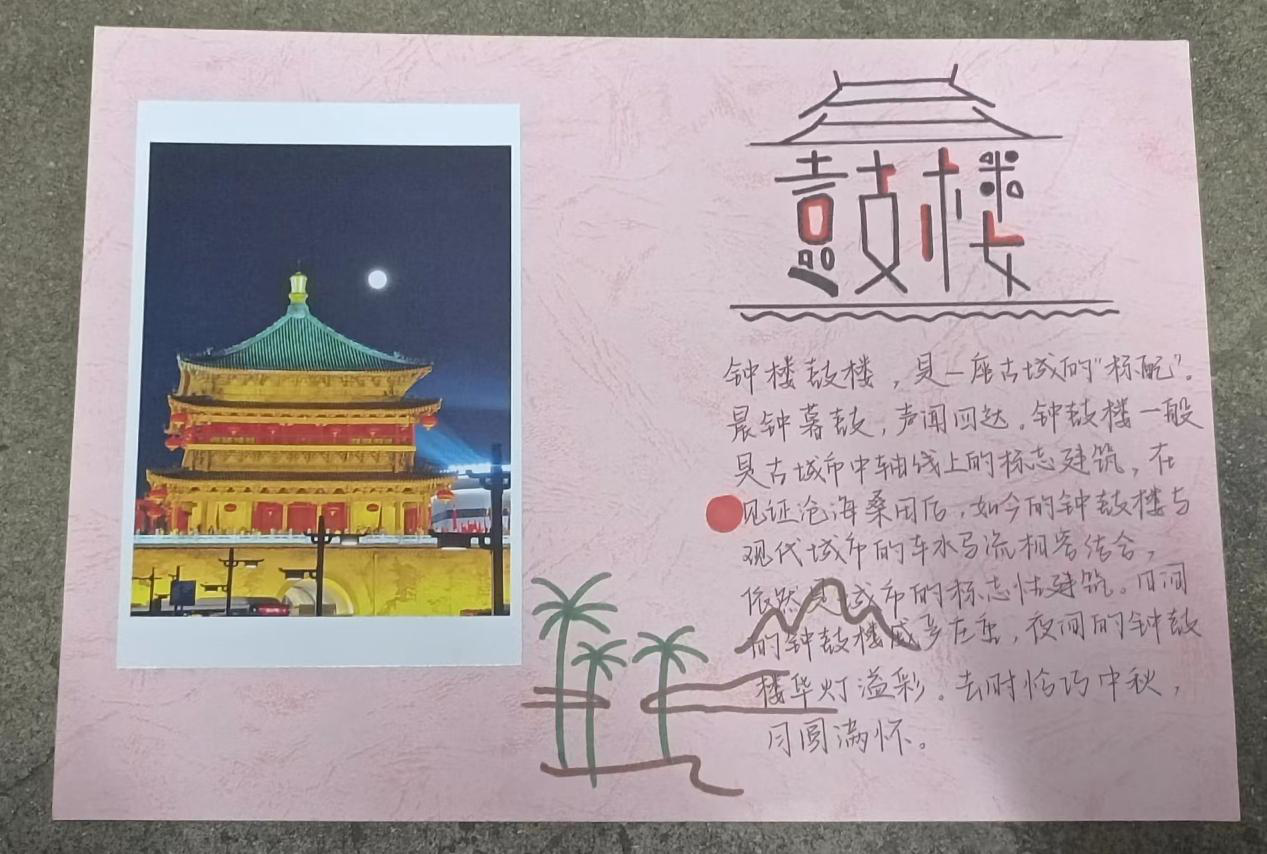 鼓楼
钟楼鼓楼，是一座古城的“标配”。
晨钟暮鼓，声闻四达。钟鼓楼一般
是古城市中轴线上的标志建筑，在
见证沧海桑田后，如今的钟鼓楼与
现代城市的车水马流相容结合，
依然是城市的标志性建筑。日间
的钟鼓楼威严庄重，夜间的钟鼓
楼华灯溢彩。去时恰巧中秋，
月圆满怀。